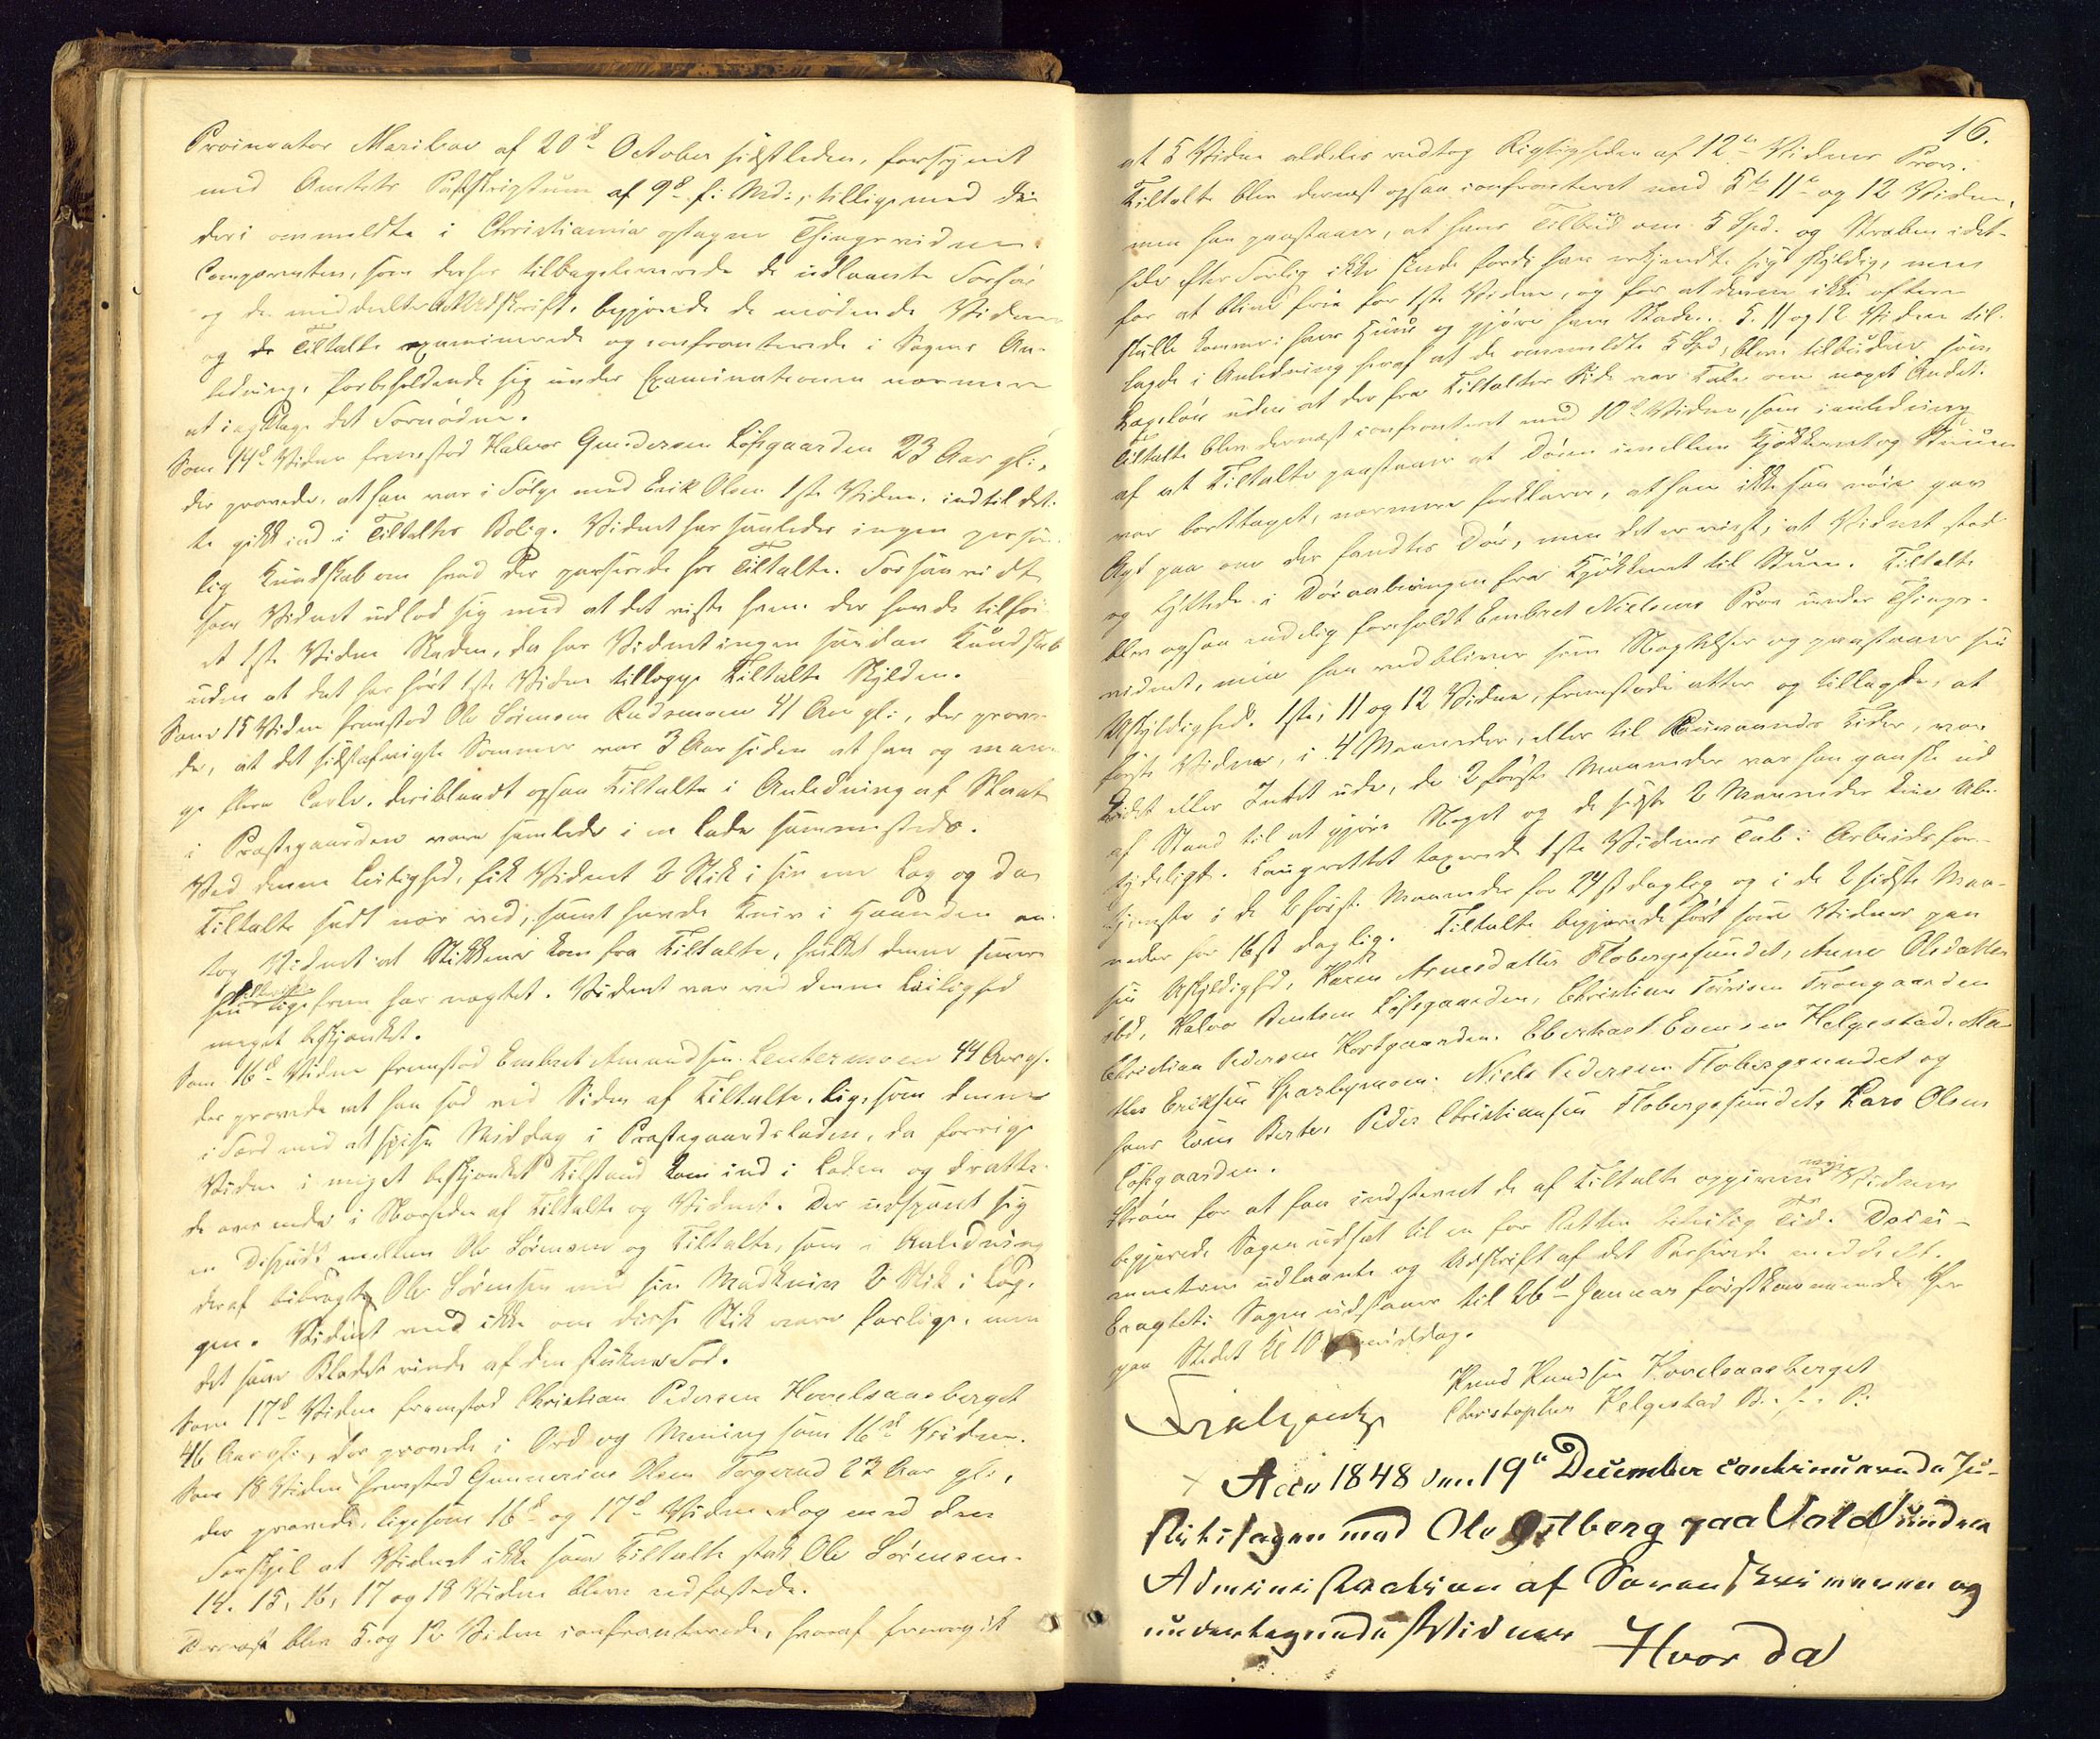 Procurator Maribor af 20d October sidstleden, forsynet
med Amtets Postskriptum af 9d f: Md:, tilligemed de
deri ommeldte i Christiania optagne Thingsvidner.
Comparenten, som derhos tilbageleverede de udlaante Forhör
og de meddeelte Udskrift, begjærede de mödende Vidner
og de Tiltalte examinerede og confronterede i Sagens An-
ledning, forbeholdende sig under Examinationen nærmere
at iagttage det Fornödne.
Som 14d Vidne fremstod Halvor Gundersen Löfsgaarden 23 Aar gl:,
der provede, at han var i Fölge med Erik Olsen 1ste Vidne, indtil det-
te gik ind i Tiltaltes Bolig. Vidnet har saaledes ingen person-
lig Kundskab om hvad der passerede hos Tiltalte. Forsaavidt
som Vidnet udlod sig med at det vidste hvem der havde tilföi-
et 1ste Vidne Skaden, da har Vidnet ingen saadan Kundskab
uden at det har hört 1ste Vidne tillægge Tiltalte Skylden.
Som 15 Vidne fremstod Ole Sörensen Rudsmoen 41 Aar gl:, der prove-
de, at det sidstafvigte Sommer var 3 Aar siden at han og man-
ge flere Karle, deriblandt ogsaa Tiltalte i Anledning af
i Præstegaarden vare samlede i en Lade sammesteds.
Ved denne Leilighed, fik Vidnet 2 Stik i sin ene Læg og da
Tiltalte sadt nær ved, samt havde Kniv i Haanden an-
tog Vidnet at Stikkene kom fra Tiltalte, hvilket denne
ligefrem har nægtet. Vidnet var ved denne Leilighed
meget beskjænket.
Som 16d Vidne fremstod Embret Amundsen Lentermoen 44 Aar gl.
der provede at han sad ved Siden af Tiltalte, ligesom denne
i Færd med at spise Middag i Præstegaardsladen, da forrige
Vidne i meget beskjænket Tilstand kom ind i Laden og dratte-
de over ende i Nærheden af Tiltalte og Vidnet. Der udspandt sig
en Disput mellem Ole Sörensen og Tiltalte, som i Anledning
deraf bibragte Ole Sörensen med sin Madkniv 2 Stik i Læg-
gen. Vidnet ved ikke om disse Stik vare farlige, men
det saae Blodet rinde af den stukne Fod.
Som 17d Vidne fremstod Christian Pedersen Hovelsaasberget
46 Aar gl:, der provede i Ord og Mening som 16de Vidne.
Som 18 Vidne fremstod Gunnerius Olsen Torgerud 23 Aar gl:,
der provede, ligesom 16d og 17d Vidne dog med den
Forskjel at Vidnet ikke saae Tiltalte stak Ole Sörensen.
14. 15, 16, 17 og 18 Vidne bleve edfæstede.
Dernæst blev 5. og 12 Vidne confronterede, hvoraf fremgik
16.
at 5 Vidne aldeles vedtog Rigtigheden af 12te Vidnes Prov.
Tiltalte blev dernæst ogsaa confronteret med 5te 11te og 12 Vidne,
men han paastaaer, at hans Tilbud om 5 Spd. og Stræben i det-
hele efter Forlig ikke skede fordi han erkjendte sig skyldig, men
for at blive fri for 1ste Vidne, og for at denne ikke oftere
skulle komme i hans Huus og gjöre ham Skade. 5. 11 og 12 Vidne til-
lagde i Anledning heraf at de ommeldte 5 Spd, bleve tilbudne som
uden at der fra Tiltaltes Side var Tale om noget Andet.
Tiltalte blev dernæst confronteret med 10d Vidne, som i anledning
af at Tiltalte paastaaer at Dören imellem Kjökkenet og Stuen
var borttaget, nærmere forklarer, at han ikke saa nöie gav
Agt paa om der fandtes Dör, men det er vist, at Vidnet stod
og lyttede i Döraabningen fra Kjökkenet til Stuen. Tiltalte
blev ogsaa endelig foreholdt Embret Nielsens Prov under Things-
vidnet, men han vedbliver sin Nægtelse og paastaaer sin
Uskyldighed. 1ste, 11 og 12 Vidne, fremstode atter og tillagde, at
förste Vidne, i 4 Maaneder, eller til Tider, var
Lidet eller Intet ude, de 2 förste Maaneder var han ganske ud
af Stand til at gjöre Noget og de sidste 2 Maaneder kun Ube-
tydeligt. Laugrettet taxerede 1ste Vidnes Tab i Arbeidsfor-
tjeneste i de 2 förste Maaneder for 24 ß daglig og i de 2 sidste Maa-
neder for 16 ß daglig. Tiltalte begjærede fört som Vidner paa
sin Uskyldighed, Karen Arnesdatter Flobergsundet, Anne Olsdatter
ibd, Halvor Bentsen Löfsgaarden, Christian Törrisen Trongaarden
Christian Pedersen Hertgaarden. Eberhart Evensen Helgestad. Ma-
thes Eriksen Sparbymoen. Niels Pedersen Flobergsundet og
hans Kone Berte, Peder Christiansen Flobergsundet, Lars Olsen
Löfsgaarden.
Ström for at faa indstevnet de af Tiltalte opgivne nye Vidner
begjærede Sagen udsat til en for Retten beleilig Tid. Docu-
menterne udlaante og Udskrift af det Passerede meddeelt.
Eragtet: Sagen udstaaer til 26d Januar förstkommende her
paa Stedet Kl 10 Formiddag.
Knud Knudsen Hovelsaasberget
Christopher Helgestad B..f.. P:
+ Aar 1848 den 19de December continuerede Ju-
stitssagen mod Ole Ostberg paa Vold under
Administration af Sorenskriveren og
undertegnede Vidner Hvor da